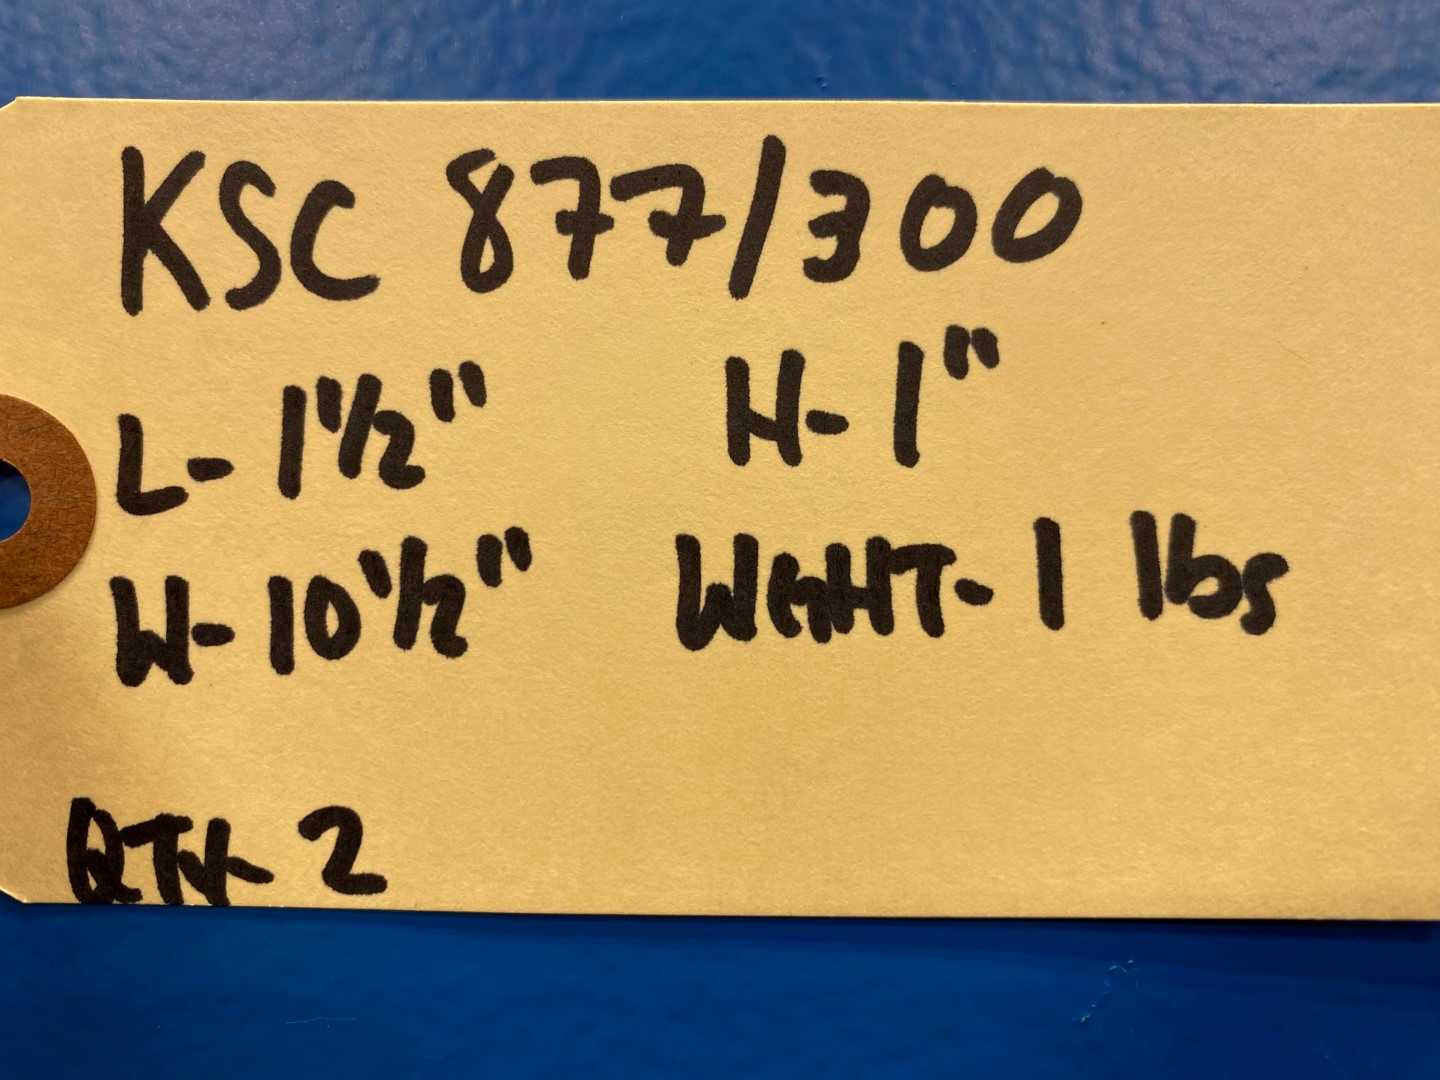 KSC 877/300
L- 1 1/2" H- 1"
W- 10 1/2" WGHT- 1 lbs
QTY- 2